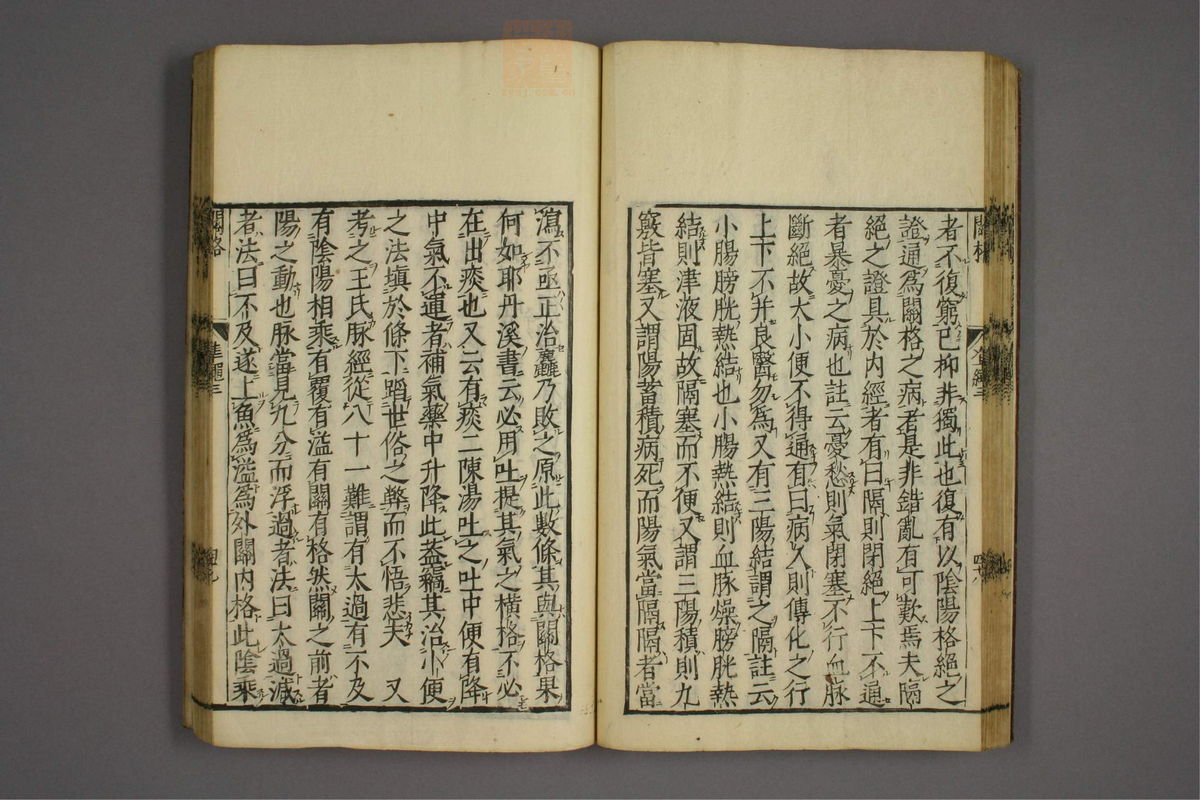 者不復窮巳抑非獨此也復有以陰陽格絶之
證通爲關格之病者是非錯亂有可歎焉夫隔
絶之證具於内經者有曰隔則閉絶上下不通
者暴憂之病也註云憂愁則氣閉塞不行血脉
斷絶故大小便不得通有曰病久則傳化之行
上下不并良醫勿爲又有三陽結謂之隔註云
小腸膀胱熱結也小腸熱結則血脉燥膀胱熱
結則津液固故隔塞而不便又謂三陽積則九
竅皆塞又謂陽蓄積病死而陽氣當隔隔者當
瀉不亟正治麤乃敗之原此數條其與關格果
何如耶丹溪書云必用吐提其氣之横格不必
在出痰也又云有痰二陳湯吐之吐中便有降
中氣不運者補氣藥中升降此蓋竊其治小便
之法填於條下蹈世俗之弊而不悟悲夫 又
考之王氏脉經從八十一難謂有太過有不及
有陰陽相乘有覆有溢有關有格然關之前者
陽之動也脉當見九分而浮過者法曰太過減
者法曰不及遂上魚爲溢爲外關内格此陰乘
關格
四九